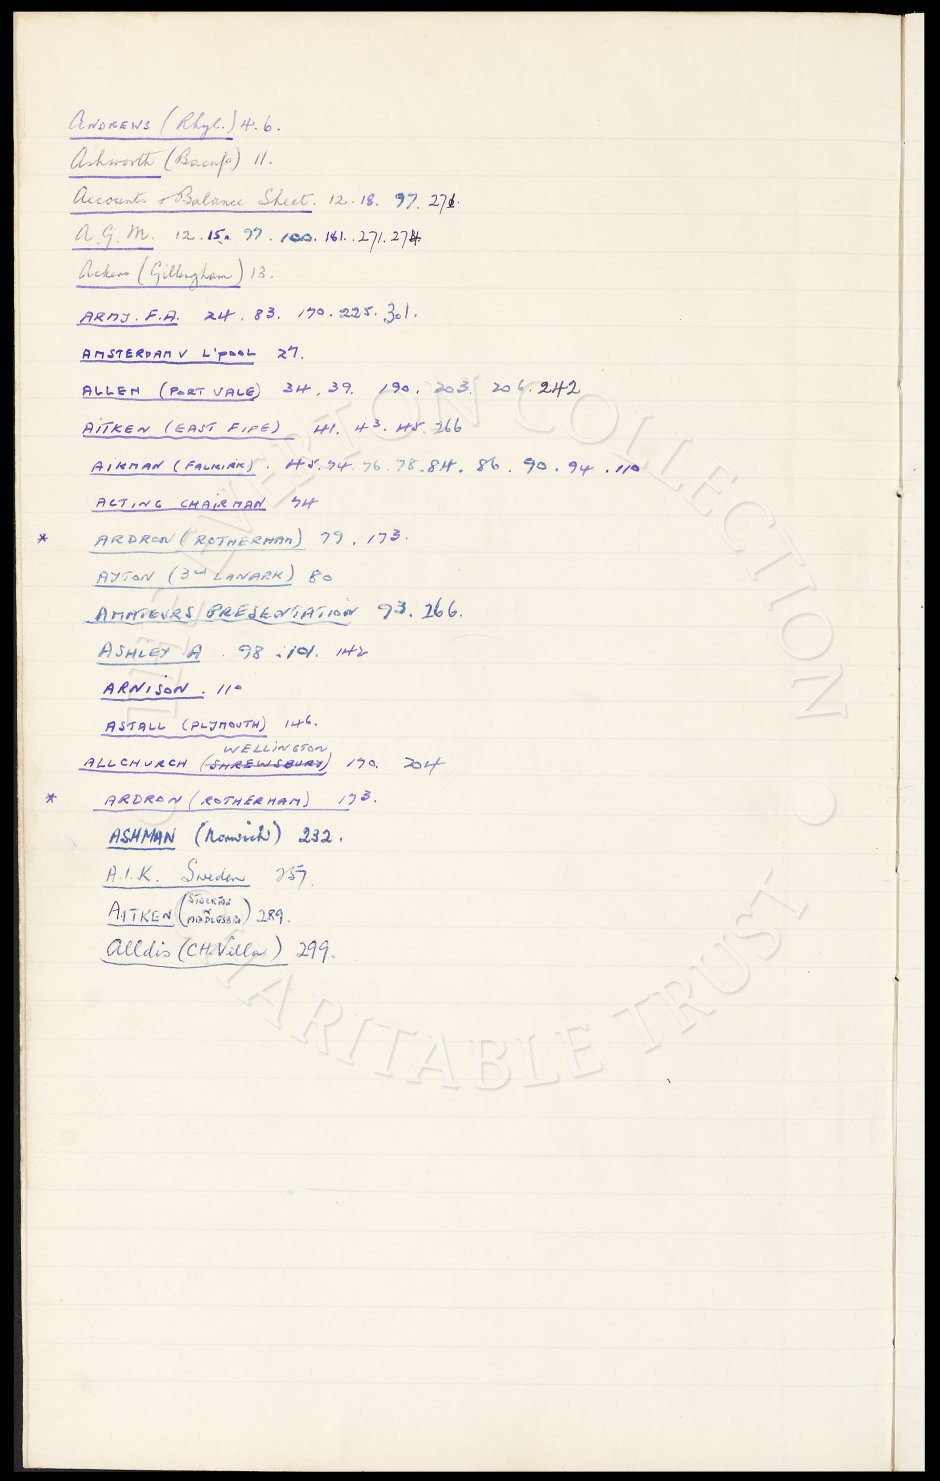 ANDREWS (Rhyl.) 4. 6.
Ashworth (Bacup) 11.
Accounts & Balance Sheet. 12. 18. 97. 271.
A.G.M. 12. 15. 99. 100. 161. 271. 274
Ackers (Gillingham) 13.
ARMY. F.A. 24. 83. 170. 225. 301.
AMSTERDAM V L'POOL 27.
ALLEN (PORT VALE) 34. 39. 190. 203. 206. 242
AITKEN (EAST FIFE) 41. 43. 45. 266
AIKMAN (FALKIRK). 45. 74. 76. 78. 84. 86. 90. 94. 110
ACTING CHAIRMAN 74
* ARDRON (ROTHERHAM) 79. 173.
AYTON (3rd LANARK) 80
AMATEURS PRESENTATION 93. 266.
ASHLEY A. 98. 101. 142
ARNISON. 110
ASTALL (PLYMOUTH) 146.
WELLINGTON
ALLCHURCH (SHREWSBURY) 170. 204
* ARDRON (ROTHERHAM) 173.
ASHMAN (Norwich) 232.
A.I.K. Sweden 257.
AITKEN (STOCKTON or MIDDLESBRO) 289.
Alldis (CH. Villa) 299.
THE EVERTON COLLECTION
CHARITABLE TRUST